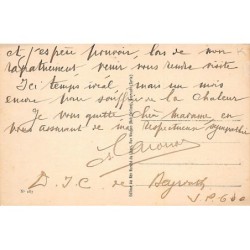 et j'espère pouvoir lors de mon
rapatriement venir vous rendre visite
Ici temps idéal mais un mois
encore pour souffrir de la chaleur
Je vous quitte chère Madame en
vous assurant de ma respectueuse sympathie
D.I.C. de Beyrouth
S.P. 600